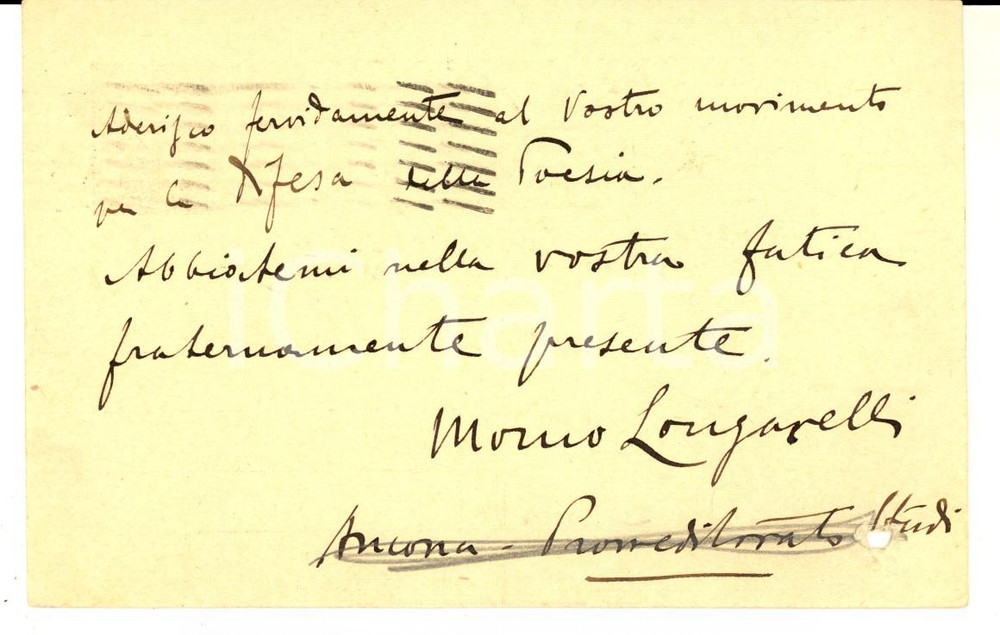 Aderisco fervidamente al Vostro movimento
per la Difesa della Poesia.
Abbiatemi nella vostra fatica
fraternamente presente.
Momo Longarelli
Ancona - Provveditorato Studi
iCharta